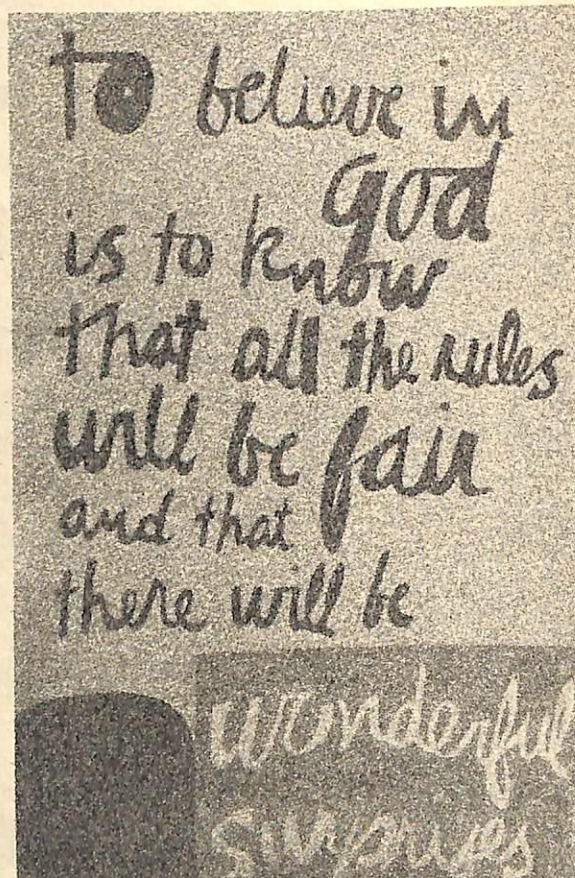 to believe in
god
is to know
that all the rules
will be fair
and that
there will be
wonderful
surprises